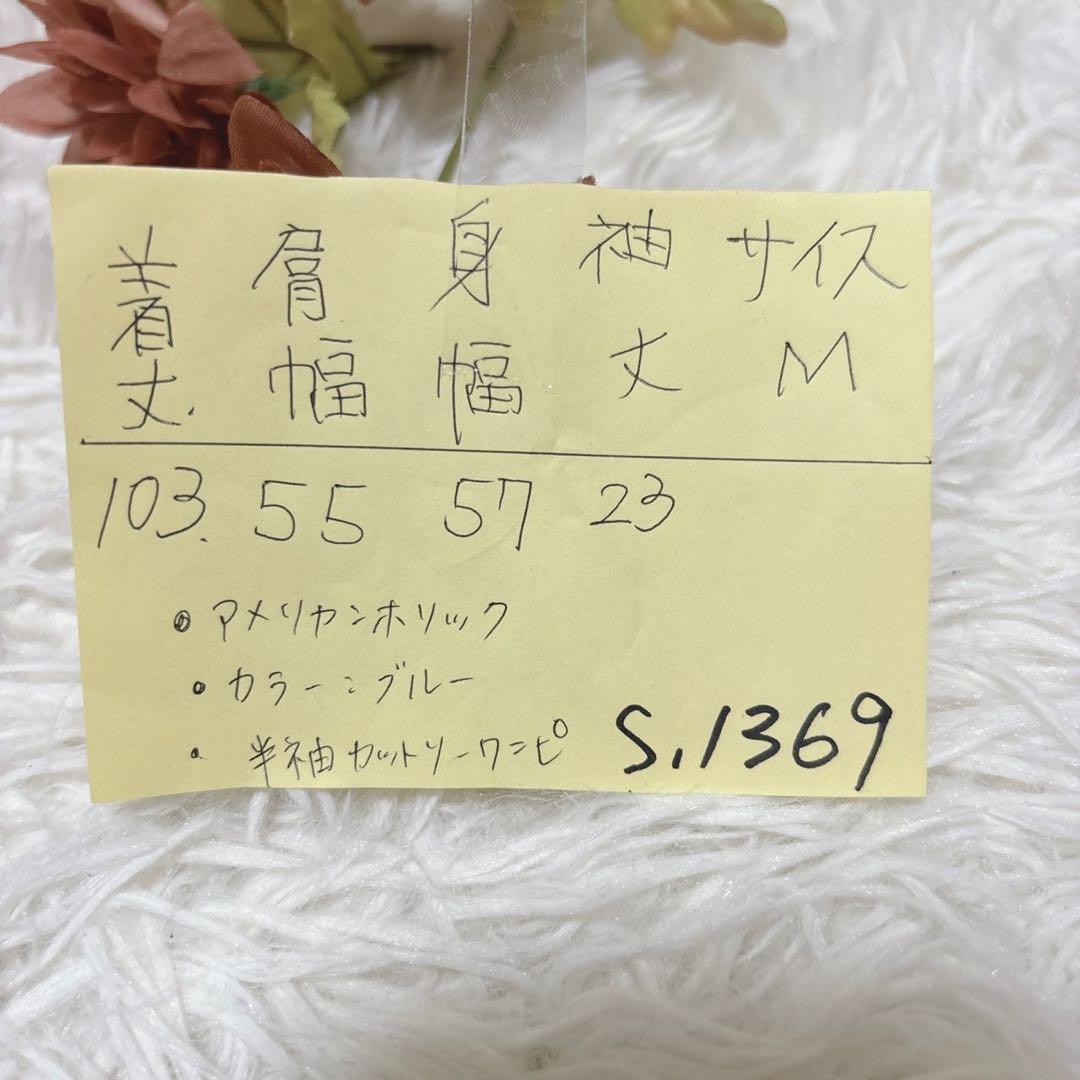 着丈. 肩幅 身幅 袖丈 サイス M
103. 55 57 23
• アメリカンホリック
• カラー:ブルー
• 半袖カットソーワンピ
S.1369